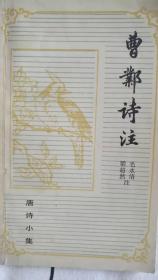 曹鄴诗注
毛水清
梁超然 注
唐诗小集